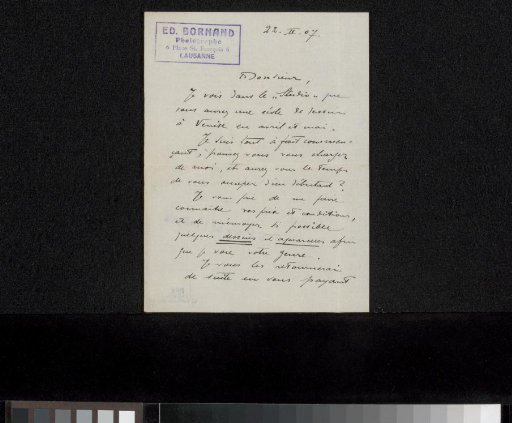 ED. BORNAND
Photographe
6 Place St. François 6
LAUSANNE
22. II. 07.
Monsieur,
Je vois dans le "Studio" que
vous aurez une école de dessin
à Venise en avril et mai.
Je suis tout à fait commen-
çant; pouvez vous vous charger
de moi, et aurez vous le temps
de vous occuper d'un débutant?
Je vous prie de me faire
connaître vos prix et conditions,
et de m'envoyer si possible
quelques dessins et aquarelles afin
que je voie votre genre.
Je vous les retournerai
de suite en vous payant